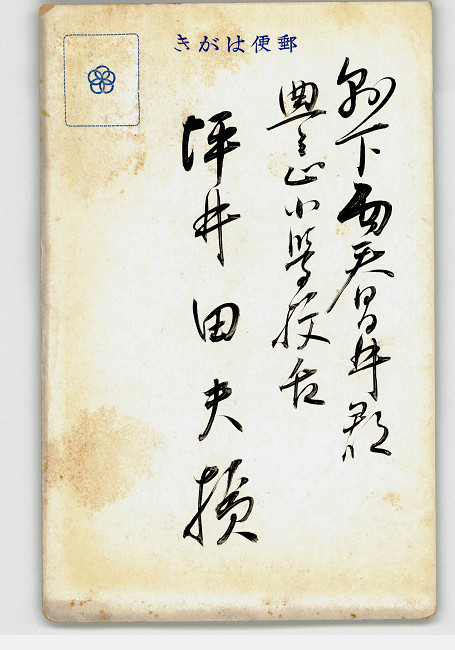 郵便はがき
縣下西春日井郡
豊山小學校
坪井田夫様